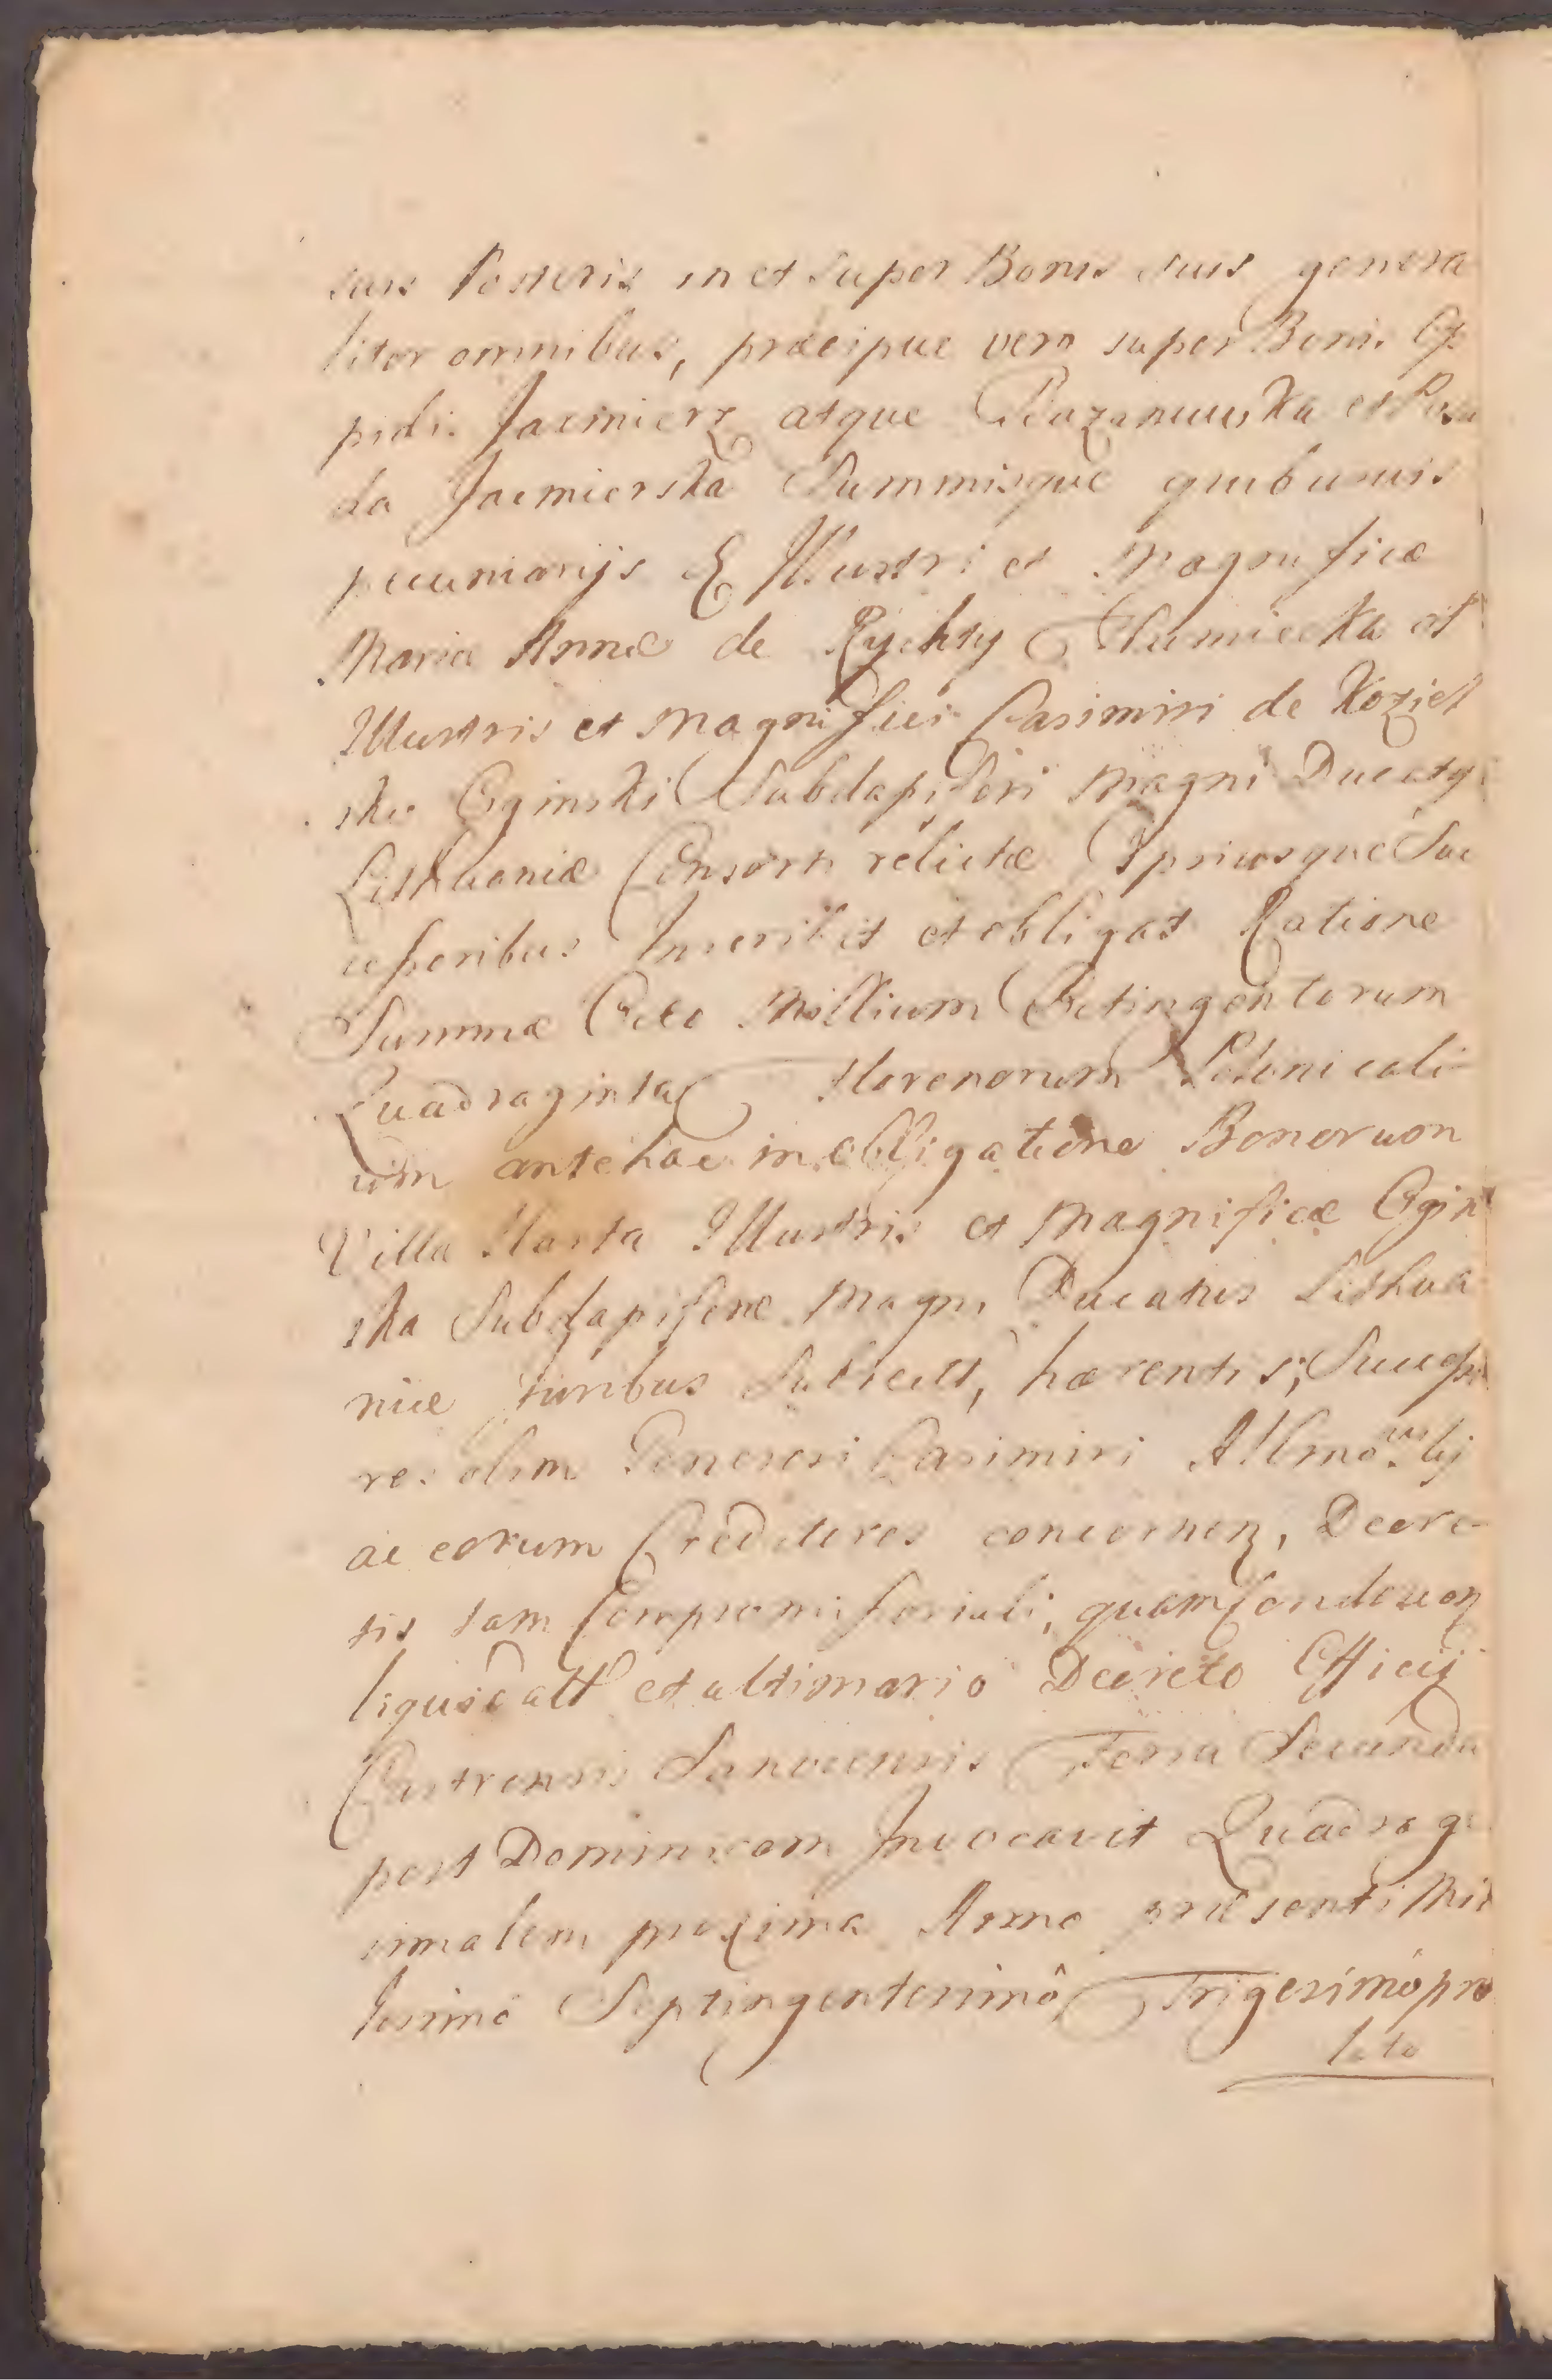 suis Posteris in et super Bonis suis genera
liter omnibus, præcipue vero super Bonis Op
pidi Jacmierz atque Bazanuwka et Posa
da Jacmierska Summisque quibusuis
pecuniarijs Illustri et Magnificæ
Mariæ Annæ de Rychty Humiecka et
Illustris et Magnifici Casimiri de Koziel
sko Oginski Subdapiferi Magni Ducatq
Lithuaniæ Consorti relictæ Ipsiusque Suc
cessoribus Inscribit et obligat Ratione
Summæ Octo Millium Octingentorum
Quadraginta Florenorum Polonicali
um antehac in obligatione Bonorum
Villa Harta Illustris et Magnificæ Ogin
ska Subdapiferæ Magni Ducatus Lithua
niæ Juribus Subiect, hærentis, Successo
res olim Generosi Casimiri
ac eorum Creditores concernen, Decre
tis tam Compromissoriali, quam Condescen
liquidatt et ultimario Decreto Officij
Castrensis Sanocensis Feria Secunda
post Dominicam Invocavit Quadrage
simalem proxima Anno præsenti Mil
lesimo Septingentesimô Trigesimo pro
lato